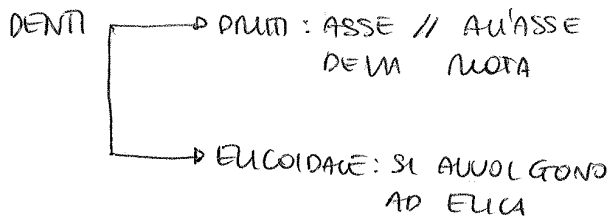 DENTI → DRITTI : ASSE // ALL'ASSE
DELLA RUOTA
→ ELICOIDALE : SI AVVOLGONO
AD ELICA